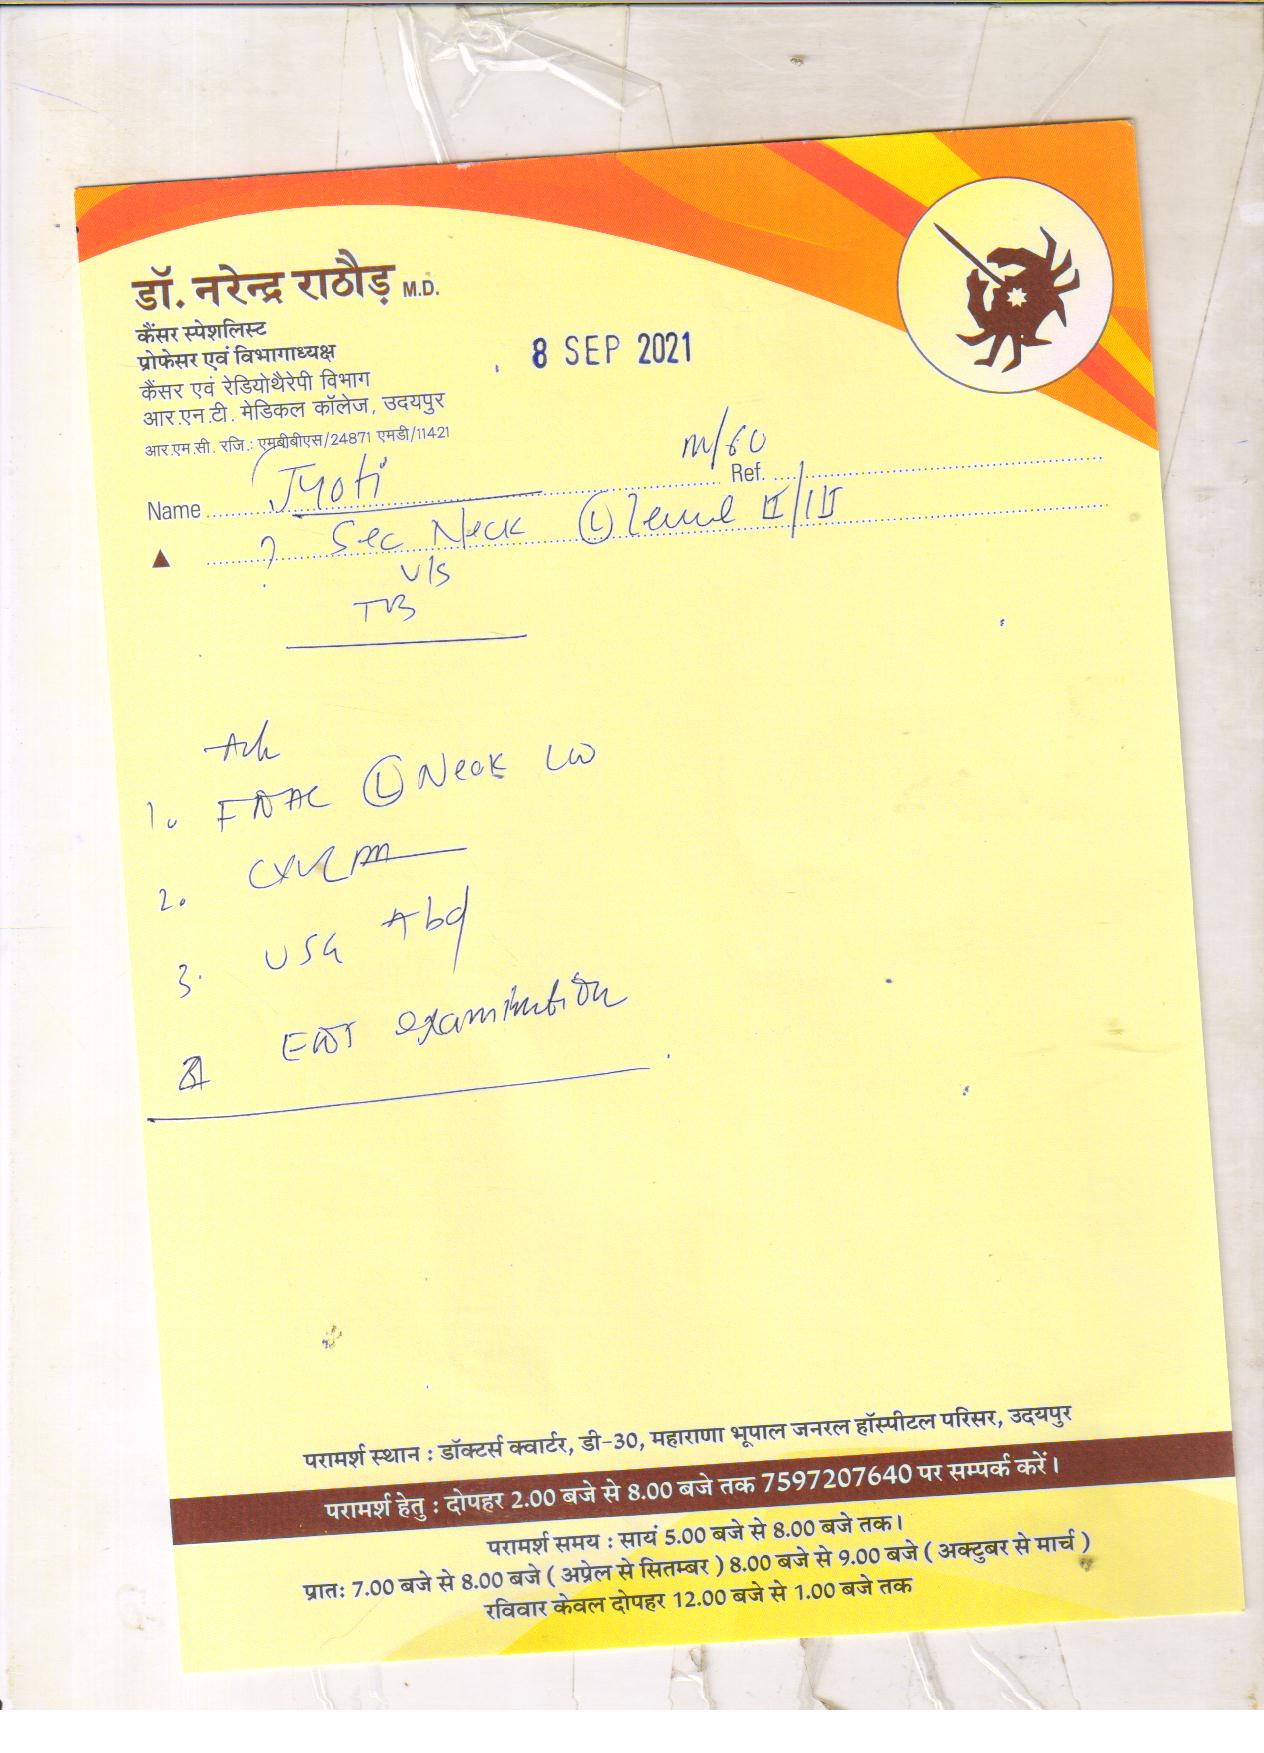 डॉ. नरेन्द्र राठौड़ M.D.
कैंसर स्पेशलिस्ट
प्रोफेसर एवं विभागाध्यक्ष
कैंसर एवं रेडियोथैरेपी विभाग
आर.एन.टी. मेडिकल कॉलेज, उदयपुर
आर.एम.सी. रजि.: एमबीबीएस/24871 एमडी/11421
8 SEP 2021
M/60
Name Jyoti Ref.
? Sec Neck (L) level II/III
V/S
TB
Adv
1. FNAC (L) Neck LN
2. CXR PA
3. USG Abd
4 ENT examination
परामर्श स्थान : डॉक्टर्स क्वार्टर, डी-30, महाराणा भूपाल जनरल हॉस्पीटल परिसर, उदयपुर
परामर्श हेतु : दोपहर 2.00 बजे से 8.00 बजे तक 7597207640 पर सम्पर्क करें।
परामर्श समय : सायं 5.00 बजे से 8.00 बजे तक।
प्रातः 7.00 बजे से 8.00 बजे ( अप्रेल से सितम्बर ) 8.00 बजे से 9.00 बजे ( अक्टुबर से मार्च )
रविवार केवल दोपहर 12.00 बजे से 1.00 बजे तक